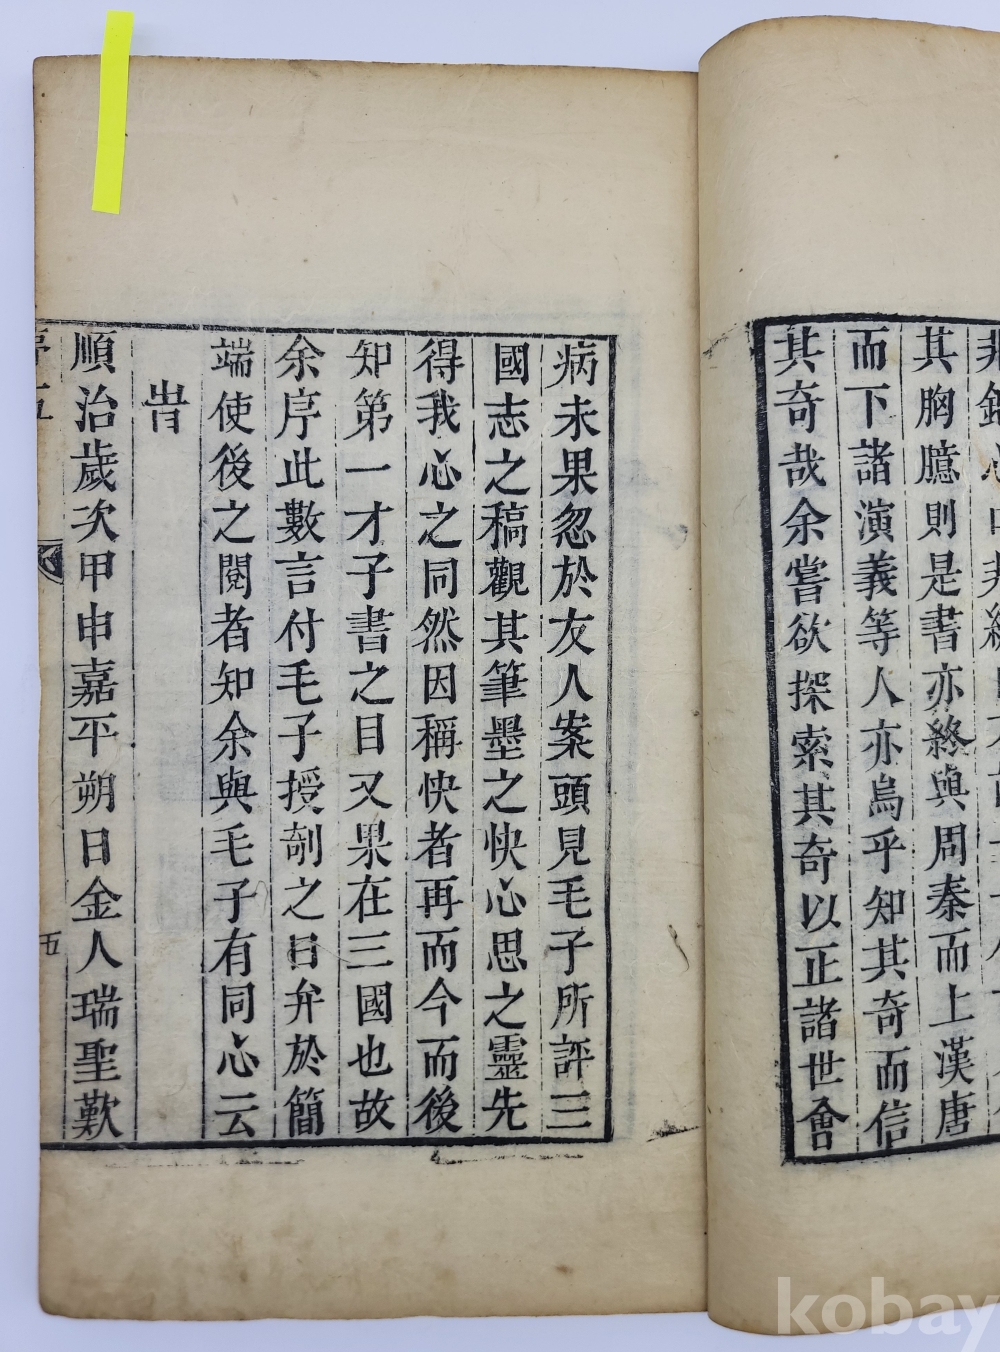 其胸臆則是書亦終與周秦而上漢唐
而下諸演義等人亦烏乎知其奇而信
其奇哉余嘗欲探索其奇以正諸世會
病未果忽於友人案頭見毛子所評三
國志之稿觀其筆墨之快心思之靈先
得我心之同然因稱快者再而今而後
知第一才子書之目又果在三國也故
余序此數言付毛子授剞之日弁於簡
端使後之閱者知余與毛子有同心云
旹
順治歲次甲申嘉平朔日金人瑞聖歎
五
kobay